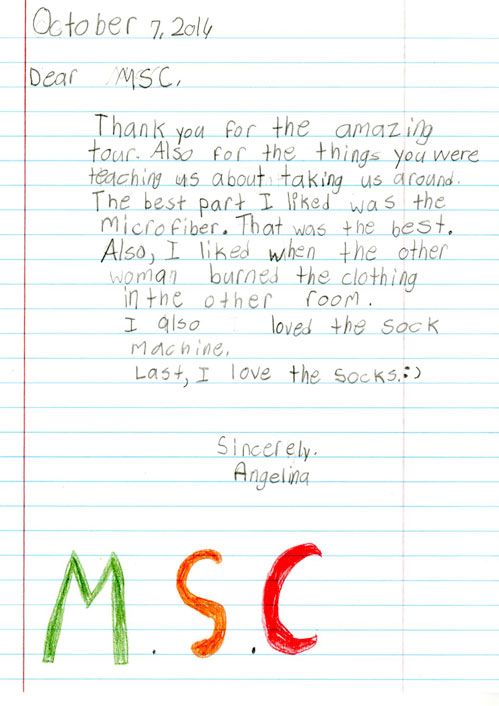 October 7, 2014
Dear MSC,
Thank you for the amazing
tour. Also for the things you were
teaching us about taking us around.
The best part I liked was the
microfiber. That was the best.
Also, I liked when the other
woman burned the clothing
in the other room.
I also loved the sock
machine.
Last, I love the socks.:)
Sincerely.
Angelina
M.S.C